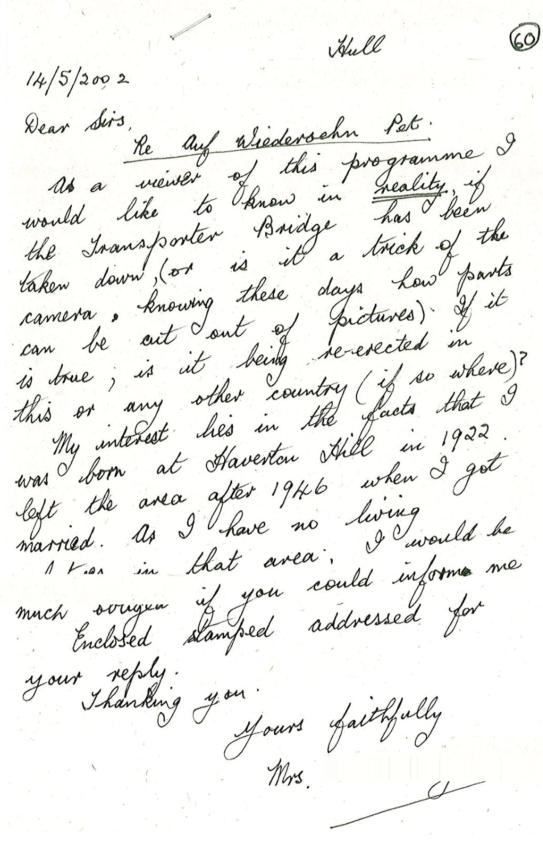 Hull
60
14/5/2002
Dear Sirs,
Re Auf Wiedersehn Pet.
As a viewer of this programme I
would like to know in reality, if
the Transporter Bridge has been
taken down, (or is it a trick of the
camera, knowing these days how parts
can be cut out of pictures). If it
is true, is it being re-erected in
this or any other country (if so where)?
My interest lies in the facts that I
was born at Haverton Hill in 1922.
left the area after 1946 when I got
married. As I have no living
in that area. I would be
much if you could informe me
Enclosed stamped addressed for
your reply.
Thanking you.
Yours faithfully
Mrs.